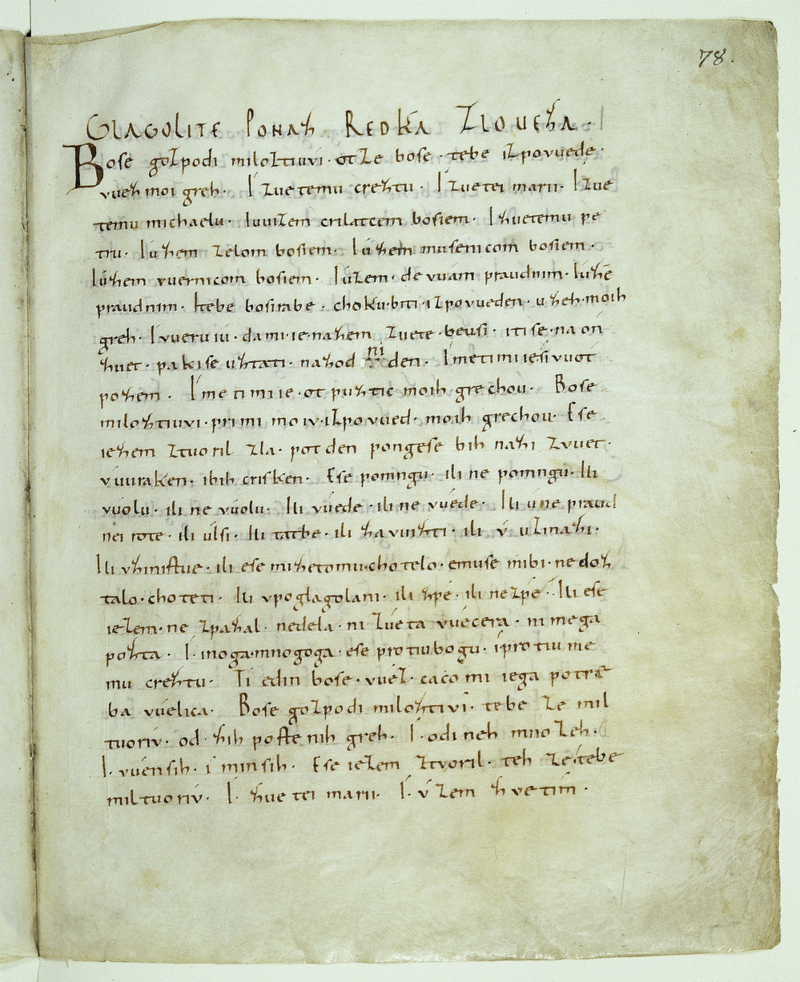 GLAGOLITE PONAZ REDKA ZLOUEZA.
Bose gozpodi miloztiuvi. otze bose. tebe izpovuede.
vuez moi greh. I zuetemu creztu. I zuetei marii. I zue
temu michaelu. Iuuizem crilatcem bosiem. I zuetemu pe
tru. Iuzem zelom bosiem. Iuzem musenicom bosiem.
Iuzem vuernicom bosiem. Iuzem. devuam praudnim. Iuzē
praudnim. Itebe bosirabe. chokubiti. izpovueden. uzeh. moih
greh. I vueruiu. da mi. ie. nazem zuete. beusi. iti se. na on
zuet. paki se uztati. nazod ni den. Imeti mi ie siuuot
pozem. Imeti mi ie. ot puztic moih grechou. Bose
miloztiuvi. primi moiv. izpovued. moih grechou. Ese
iezem ztuoril zla. pot den pongese bih nazi zvuet.
vuuraken. ibih crisken. Ese pomngu. ili ne pomngu. Ili
vuolu. ili ne vuolu. Ili vuede. ili ne vuede. Ili u ne praud
nei rote. ili ulsi. Ili tatbe. ili zavuizti. ili v uzmazi.
Ili vzinistue. ili ese mi zetomu. chotelo. emuse mibi. ne doz
talo. choteti. Ili vpoglagolani. ili zpé. ili nezpé. Ili ese
iezem. ne zpazal. nedela. ni zueta vuecera. ni mega
pozta. I. inoga. mnogoga. ese protiubogu. iprotiu me
mu creztu. Ti edin bose. vuez. caco mi iega potrę
ba vuelica. Bose gozpodi miloztivi. tebe ze mil
tuoriv. od. zih postenih greh. I. odineh mnozeh.
I. vuensih. i minsih. Ese iezem ztvoril. teh ze. tebe
miltuoriv. I. zuetei marii. I. vzem zvetim.
78.